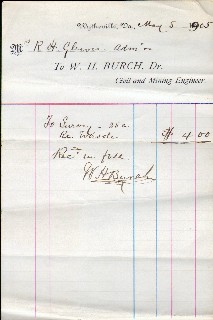 Wytheville, Va., May 5 1905
Mr R. H. Glover Adm'r
To W. H. BURCH, Dr.
Civil and Mining Engineer
To Survey
Re. Woods $4 00
Rec'd in full
W H Burch